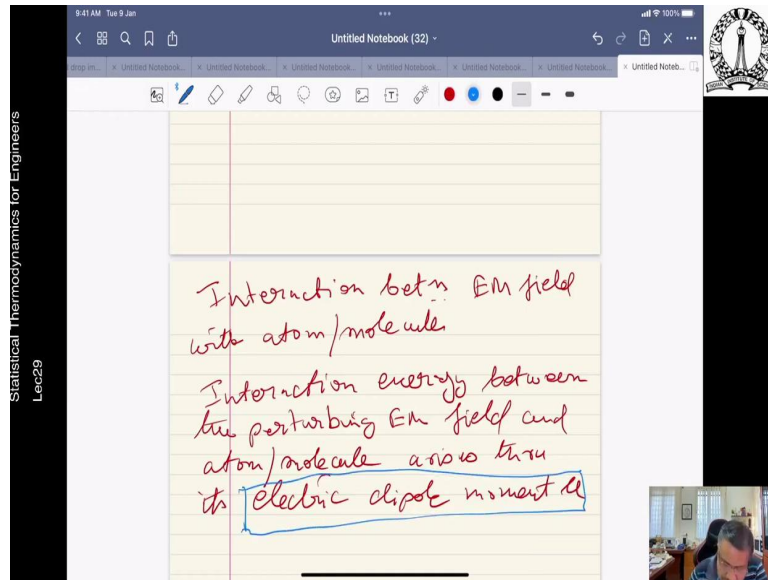 9:41 AM Tue 9 Jan
100%
Untitled Notebook (32)
drop im... × Untitled Notebook... × Untitled Notebook... × Untitled Notebook... × Untitled Notebook... × Untitled Notebook... × Untitled Noteb...
Statistical Thermodynamics for Engineers
Lec29
Interaction betn EM field
with atom/molecules
Interaction energy between
the perturbing EM field and
atom/molecule arises thru
its electric dipole moment μ